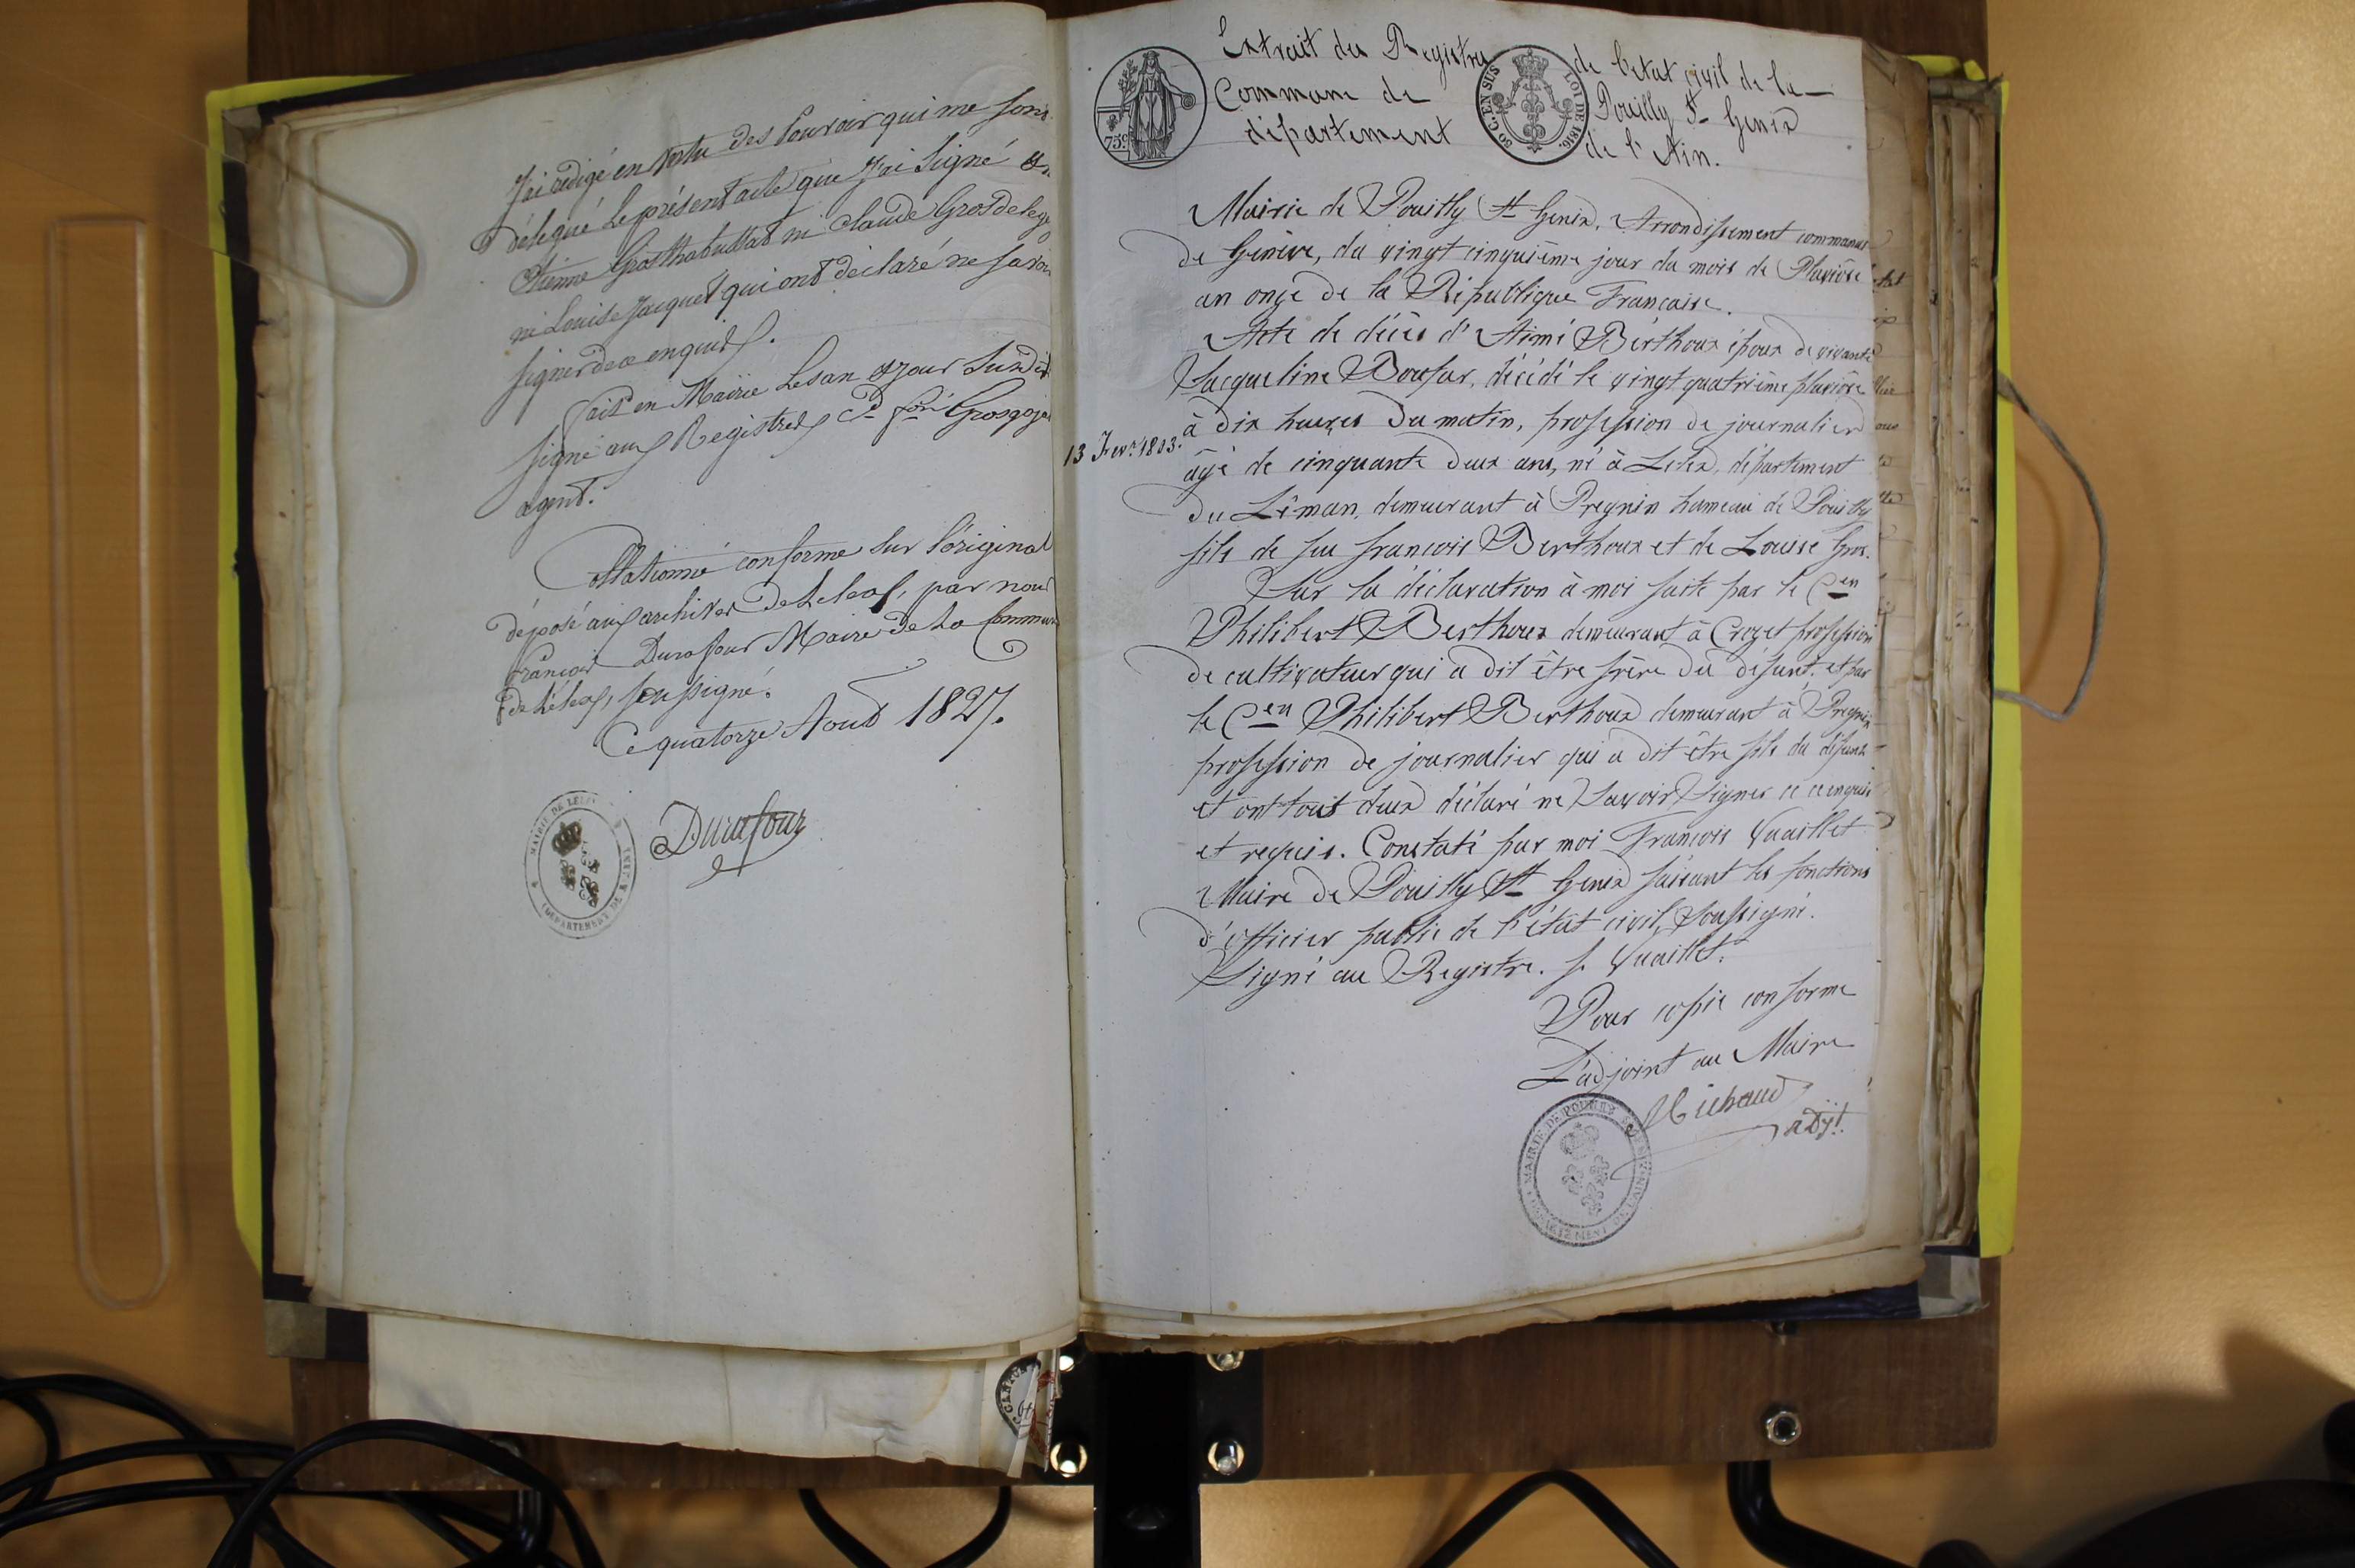 J'ai rédigé en vertu des Pouvoir qui me sont
délégué le présent acte que J'ai Signé et
Etienne Grosthabuttat ni Claude Grosdelege
ni Louise Jacquet qui ont déclaré ne savoir
signer de ce enquis.
fait en Mairie Les an et jour Susdit
signé aux Registres
agent.
Collationné conforme sur l'original
déposé aux archives de Lelex, par nous
François Durafour Maire de La Commune
de Lélex, soussigné.
Ce quatorze Aout 1827.
Durafour
MAIRIE DE LELEX
DEPARTEMENT DE L'AIN
Extrait du Registre de l'etat civil de la
Commune de Pouilly St Genix
département de l'Ain.
75 c.
30 C. EN SUS
LOI DE 1816.
Mairie de Pouilly St Genix, Arrondissement communal
de Genève, du vingt cinquième jour du mois de Pluviôse
an onze de la République Francaise.
Acte de décès d'Aimé Berthoux époux de vivante
Jacqueline décédé le vingt quatrième pluviôse
à dix heures du matin, profession de journalier
13 Fevr. 1803.
âgé de cinquante deux ans, né à Lelex, département
du Léman, demeurant à Pregnin hameau de Pouilly
fils de feu francois Berthoux et de Louise Gros.
Sur la déclaration à moi faite par le Cen
Philibert Berthoux demeurant à Crozet profession
de cultivateur qui a dit être frère du défunt, et par
le Cen Philibert Berthoux demeurant à Pregnin
profession de journalier qui a dit être fils du défunt
et ont tous deux déclaré ne Savoir Signer ce enquis
et requis. Constaté par moi François Vuaillet
Maire de Pouilly St Genix faisant les fonctions
d'officier public de l'état civil, Soussigné.
Signé au Registre. f. Vuaillet.
Pour copie conforme
L'adjoint au Maire
Michaud
adjt.
MAIRIE DE POUILLY